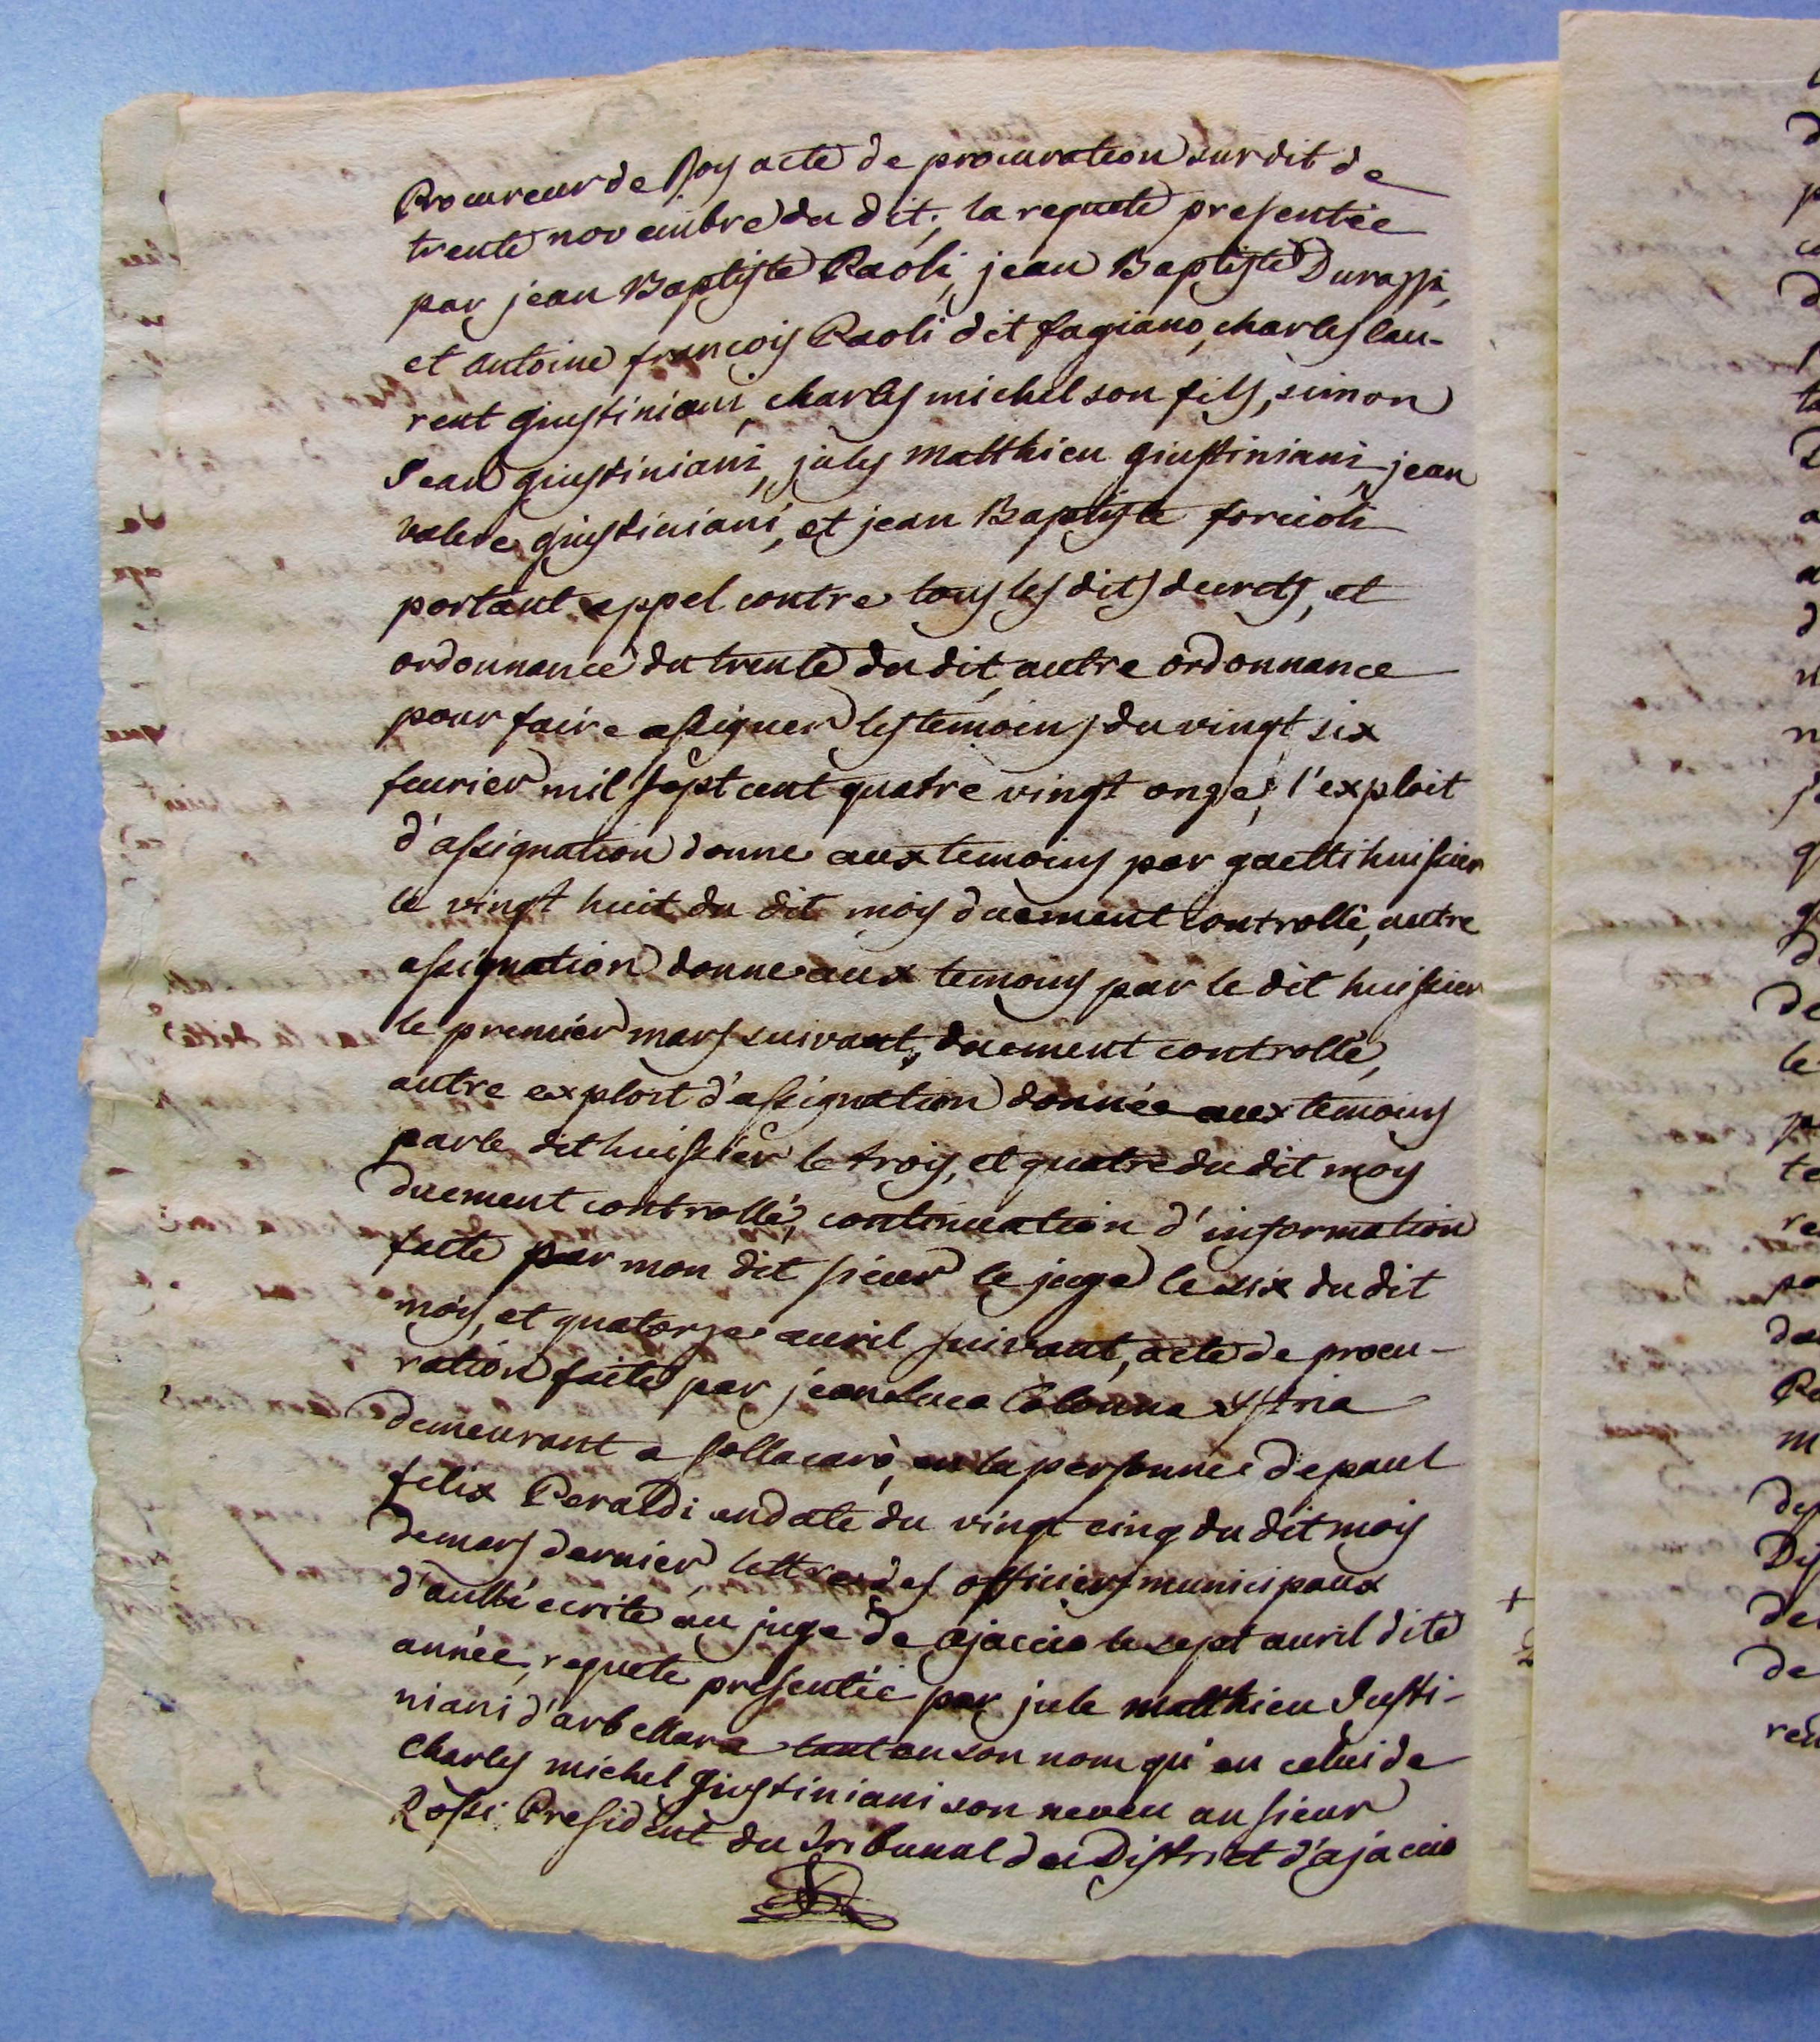 Procureur de Roy acte de procuration surdit de
trente novembre du dit, la requete presentée
par jean Baptiste Paoli, jean Baptiste Durazzi,
et antoine françois Paoli dit fagiano, charles lau-
rent giustiniani, charles michel son fils, simon
Jean giustiniani, jules matthieu giustiniani jean
valere giustiniani, et jean Baptiste forcioli
portant appel contre tous les dits decrets, et
ordonnance du trente du dit, autre ordonnance
pour faire assigner les temoins du vingt six
feurier mil sept cent quatre vingt onze, l'exploit
d'assignation donne aux temoins par gaetti huissier
le vingt huit du dit mois duement controllé, autre
assignation donne aux temoins par le dit huissier
le premier mars suivant, duement controllé,
autre exploit d'assignation donnée aux temoins
par le dit huissier le trois, et quatre du dit mois
duement controllé, continuation d'information
faite par mon dit sieur le juge le six du dit
mois, et quatorze auril suivant, acte de procu-
ration faite par jean Luca Colonna Istria
demeurant a sollacarò, en la personne de paul
felix Peraldi en date du vingt cinq du dit mois
de mars dernier, lettre des officiers municipaux
d'aullé ecrite au juge de ajaccio le sept auril dite
année, requete presentée par jule matthieu Justi-
niani d'arbellara tant en son nom qu'en celui de
charles michel giustiniani son neveu au sieur
Rossi President du Tribunal du District d'ajaccio